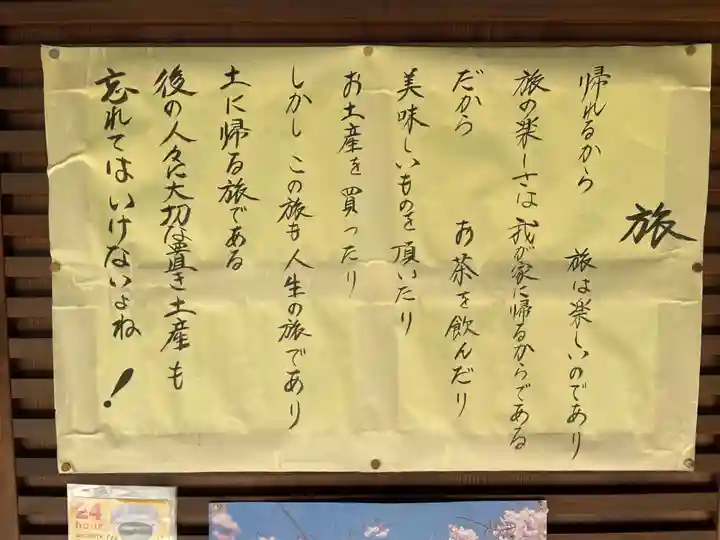 旅
帰れるから 旅は楽しいのであり
旅の楽しさは 我が家に帰るからである
だから お茶を飲んだり
美味しいものを頂いたり
お土産を買ったり
しかし この旅も人生の旅であり
土に帰る旅である
後の人々に大切な置き土産も
忘れてはいけないよね!
24
hour